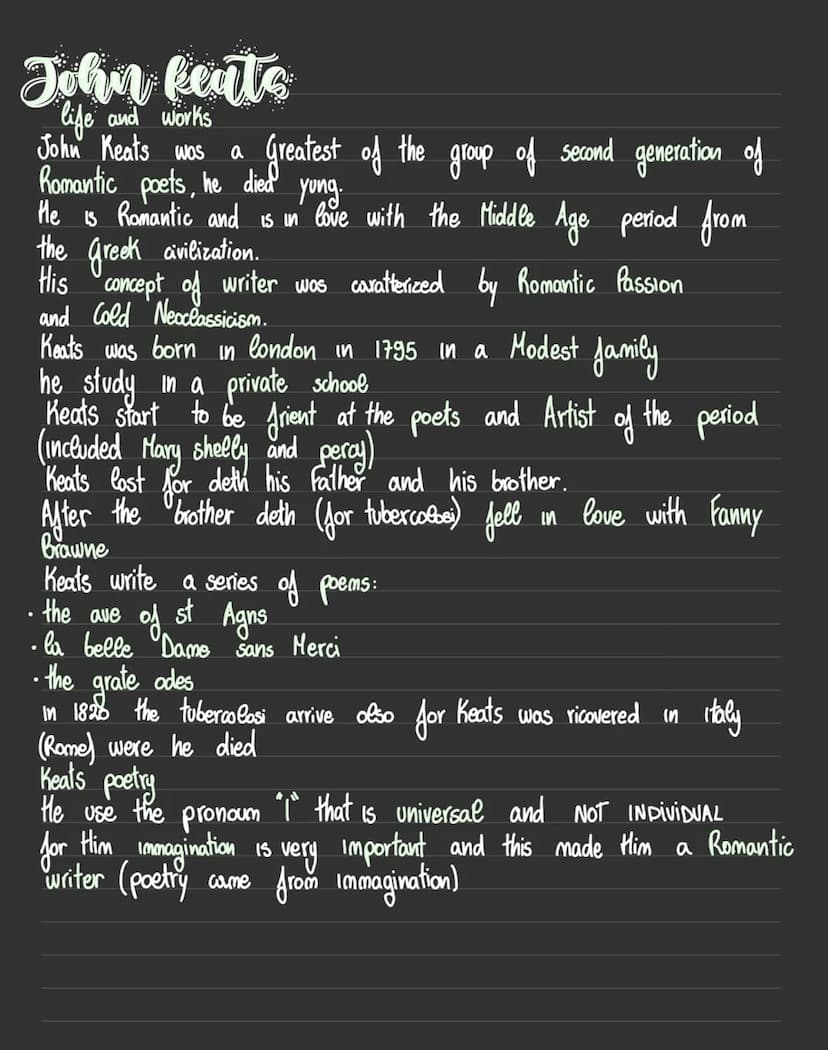 John Keats
life and works
John Keats was a Greatest of the group of second generation of
Romantic poets, he died yung.
He is Romantic and is in love with the Middle Age period from
the Greek civilization.
His concept of writer was caratterized by Romantic Passion
and Cold Neoclassicism.
Keats was born in london in 1795 in a Modest family
he study in a private school
Keats start to be frient at the poets and Artist of the period
(included Mary shelly and percy)
Keats lost for deth his Father and his brother.
After the brother deth (for tubercolosi) fell in love with Fanny
Brawne
Keats write a series of poems:
· the ave of st Agns
· la belle Dame sans Merci
· the grate odes
in 1820 the tubercolosi arrive also for Keats was ricovered in italy
(Rome) were he died
Keats poetry
He use the pronoum "I" that is universal and NOT INDIVIDUAL
for Him immagination is very important and this made Him a Romantic
writer (poetry came from immagination)